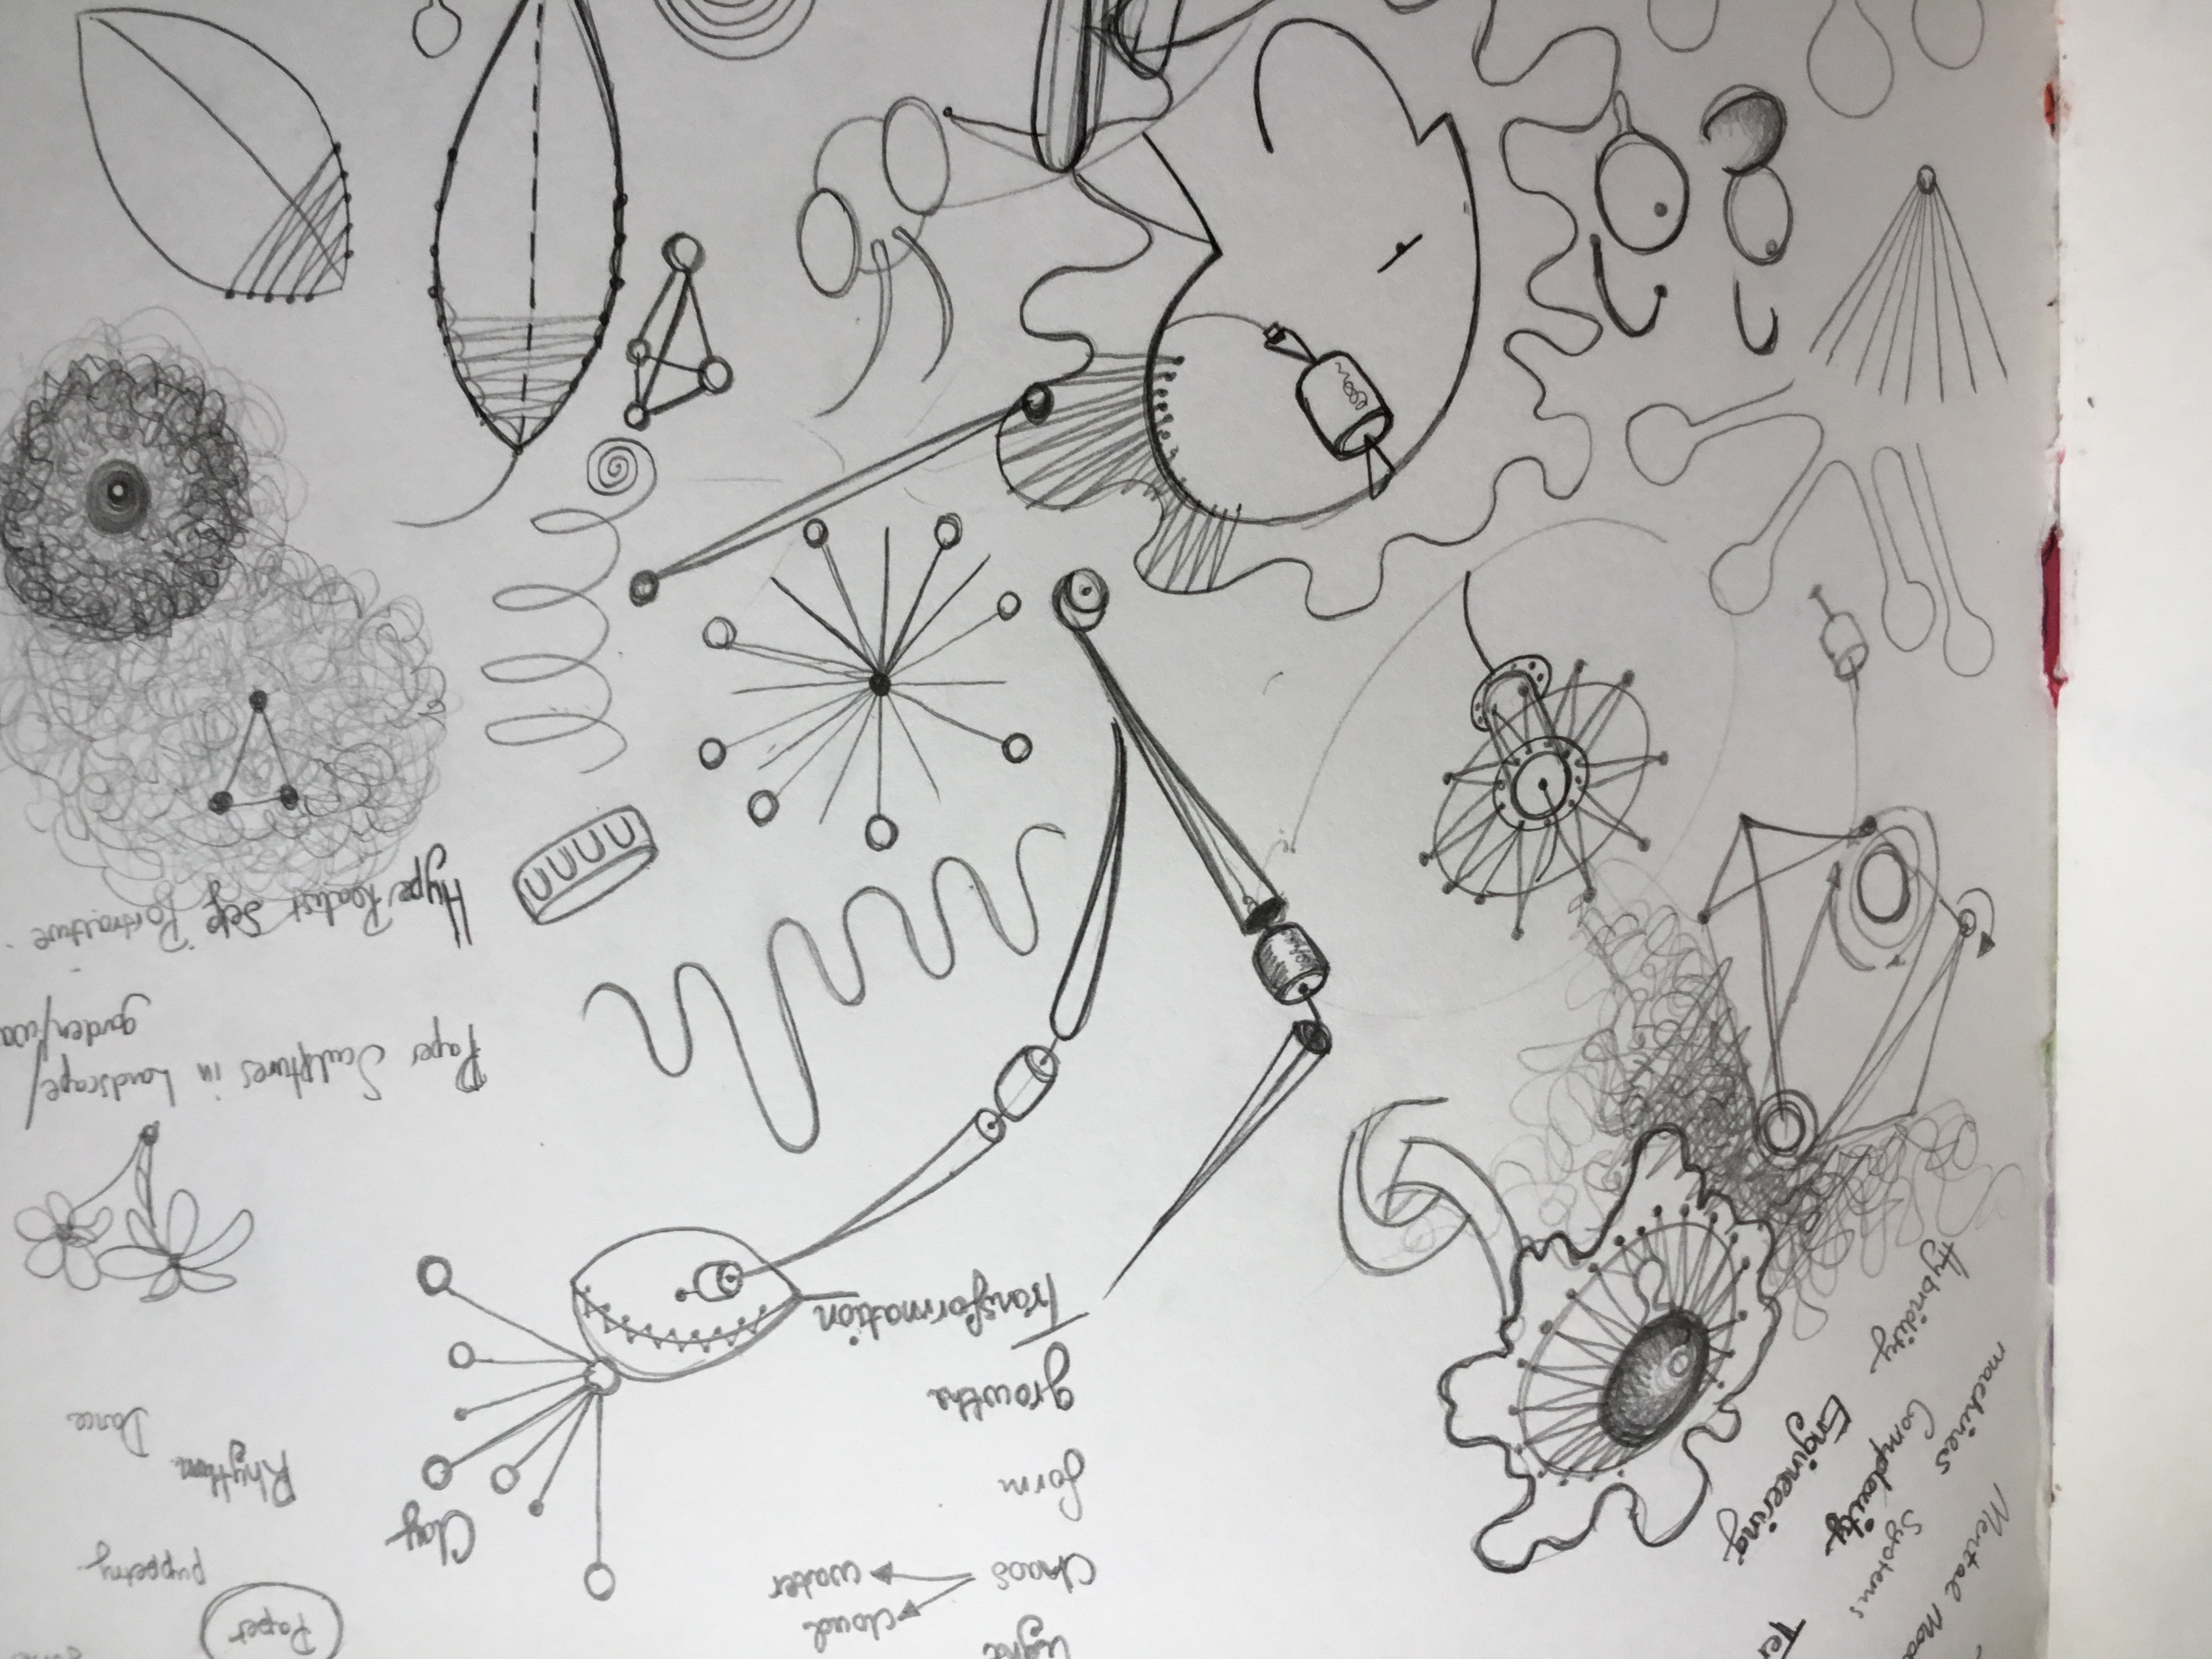 Mental
Systems
machines
Complexity
Engineering
Hybridity
light
Chaos
cloud
water
form
growthe
Transformation
Clay
Paper
puppetry
Rhythm
Dance
Paper Sculptures in Landscape/
garden/
Hype Realist Self Portraiture